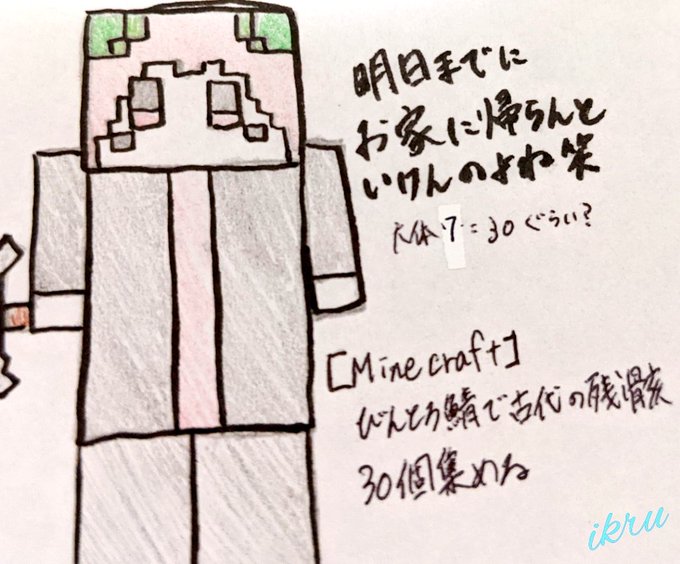 明日までに
お家に帰らんと
いけんのよね笑
大体7:30ぐらい?
[Minecraft]
びんとろ鯖で古代の残滑亥
30個集めね
ikru